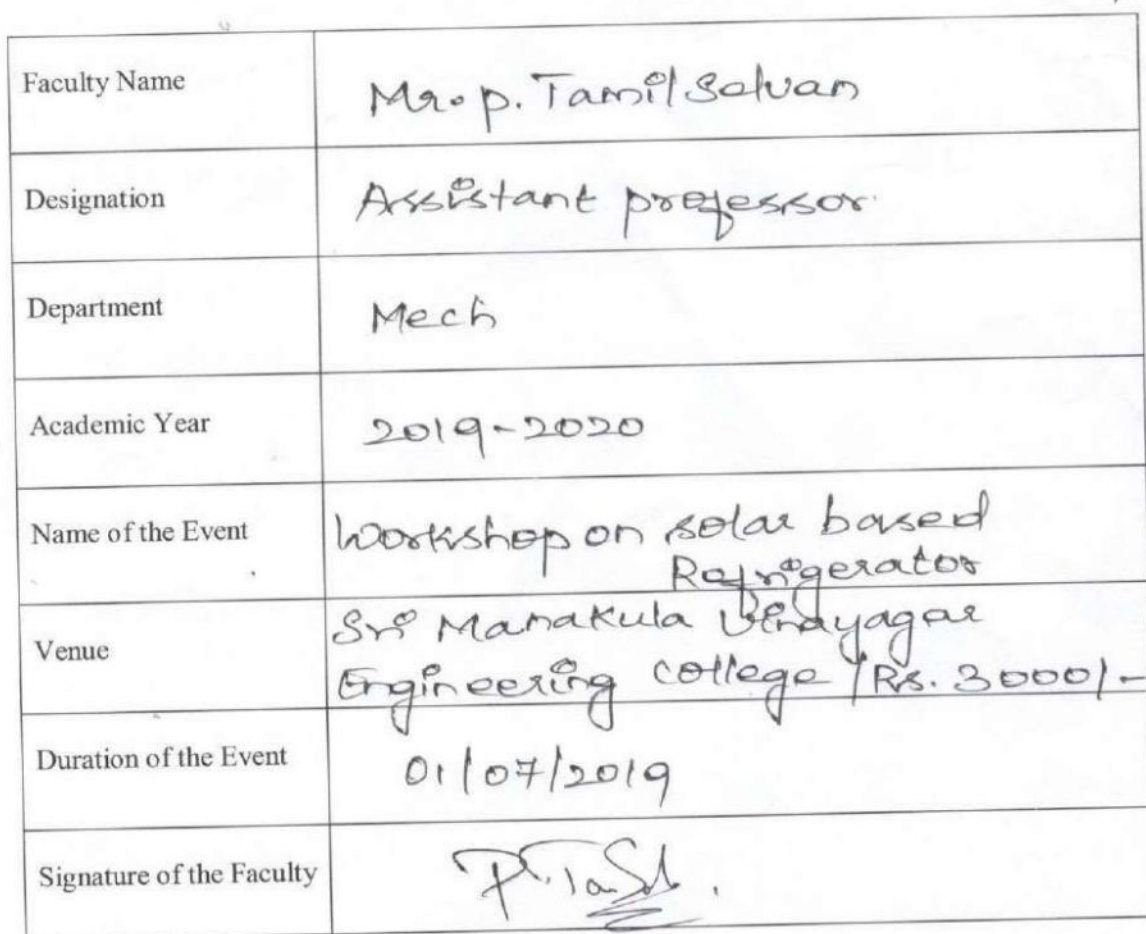 Faculty Name Mr. p. Tamil Selvan
Designation Assistant professor
Department Mech
Academic Year 2019-2020
Name of the Event Workshop on solar based
Refrigerator
Venue Sri Manakula Vinayagar
Engineering college /Rs. 3000/-
Duration of the Event 01/07/2019
Signature of the Faculty